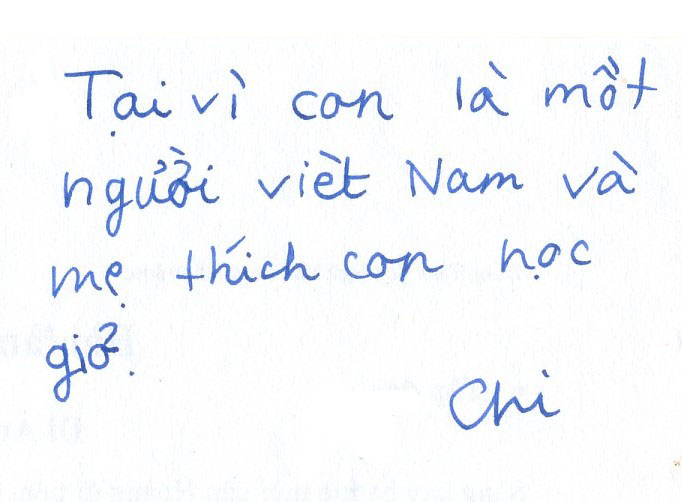 Tại vì con là mồt
người việt Nam và
mẹ thích con học
giỏ.
Chi